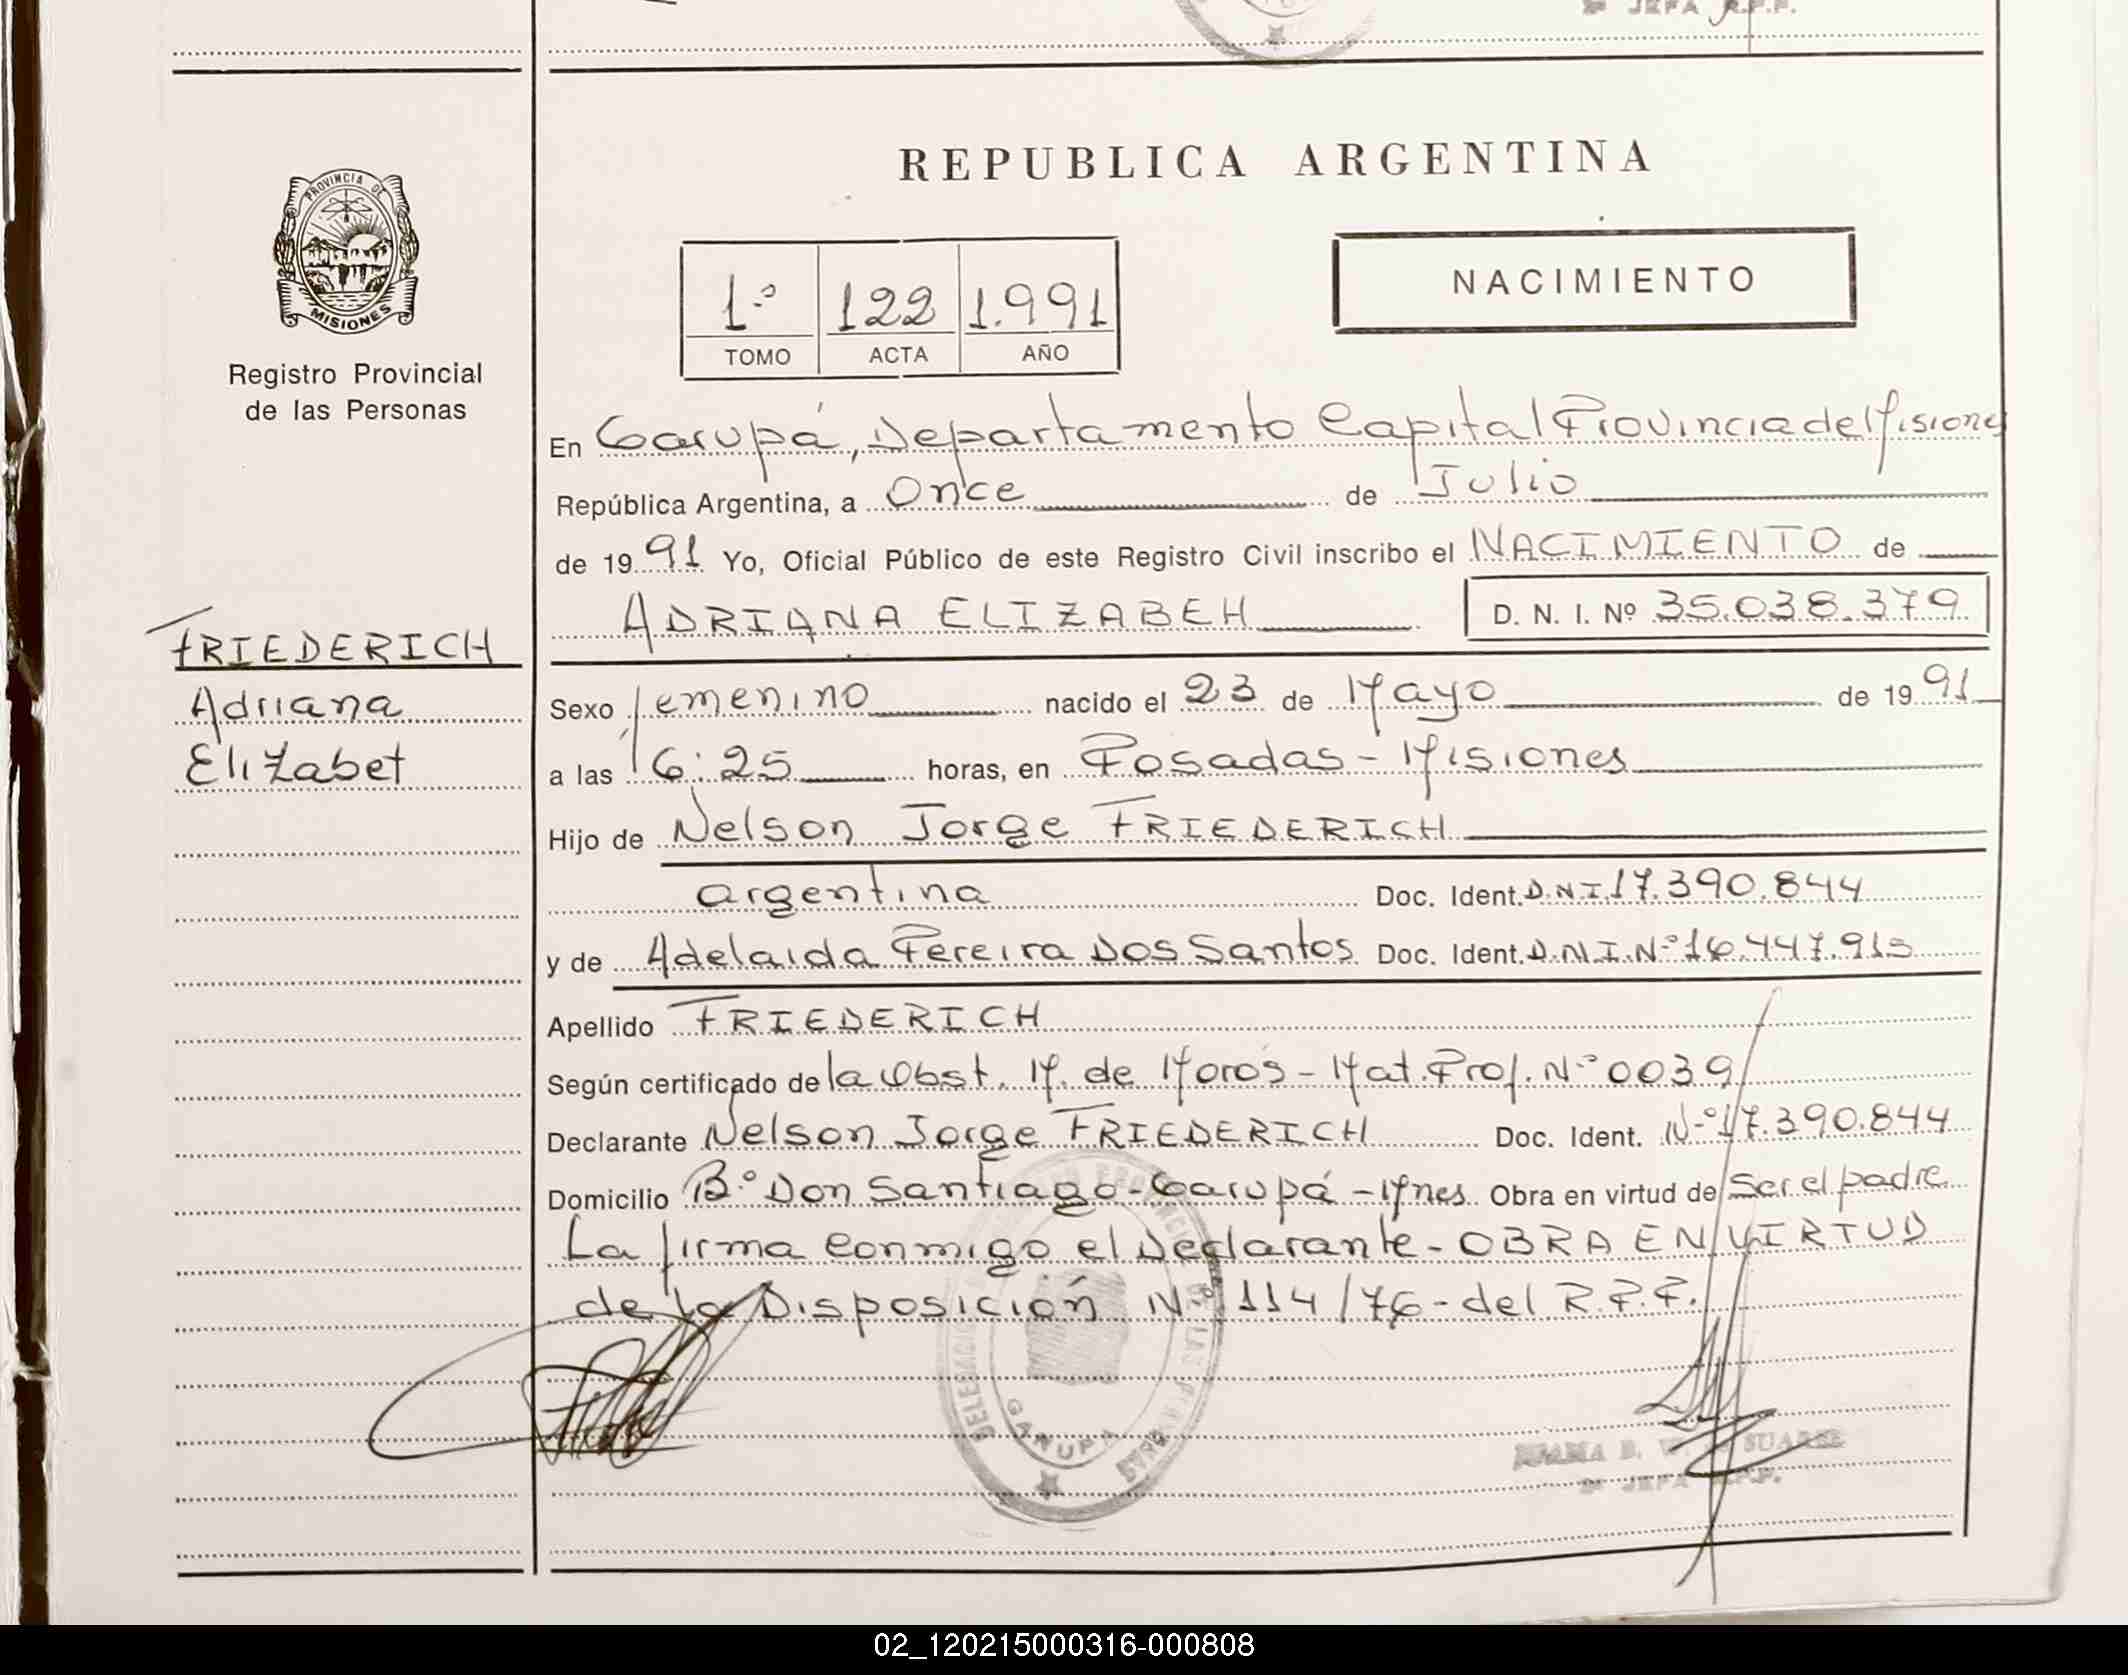 2º JEFA R.P.P.
REPUBLICA ARGENTINA
PROVINCIA DE
MISIONES
Registro Provincial
de las Personas
NACIMIENTO
1.º 122 1.991
TOMO ACTA AÑO
En Garupá, Departamento Capital Provincia de Misiones
República Argentina, a Once de Julio
de 1991 Yo, Oficial Público de este Registro Civil inscribo el NACIMIENTO de
ADRIANA ELIZABEH D. N. I. Nº 35.038.379
FRIEDERICH
Adriana
Elizabet
Sexo femenino nacido el 23 de Mayo de 1991
a las 16:25 horas, en Posadas - Misiones
Hijo de Nelson Jorge FRIEDERICH
argentina Doc. Ident. D.N.I. 17.390.844
y de Adelaida Pereira Dos Santos Doc. Ident. D.N.I.Nº 16.447.915
Apellido FRIEDERICH
Según certificado de la Obst. M. de Moros - Mat. Prof. Nº 0039
Declarante Nelson Jorge FRIEDERICH Doc. Ident. Nº 17.390.844
Domicilio Bº Don Santiago - Garupá - Mnes. Obra en virtud de ser el padre
La firma conmigo el Declarante - OBRA EN VIRTUD
de la Disposición Nº 114/76 - del R.P.P.
GARUPA
SUAREZ
2º JEFA R.P.P.
02_120215000316-000808